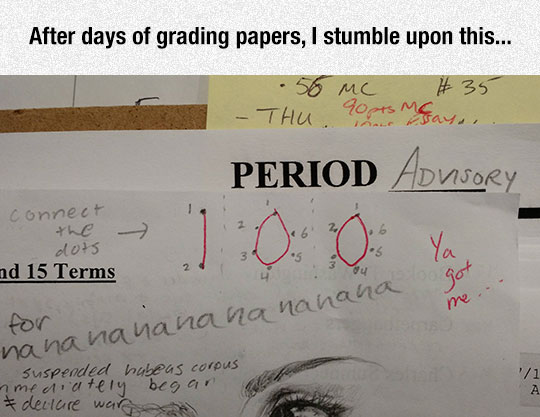 After days of grading papers, I stumble upon this...
· 56 MC # 35
- THU 90pts MC
Essay
PERIOD ADVISORY
connect
the
dots →
1 2
1 2 3 4 5 6
1 2 3 4 5 6
Ya
got
me...
nd 15 Terms
for
nanananananananana
suspended habeas corpus
mmediately began
≠ declare war